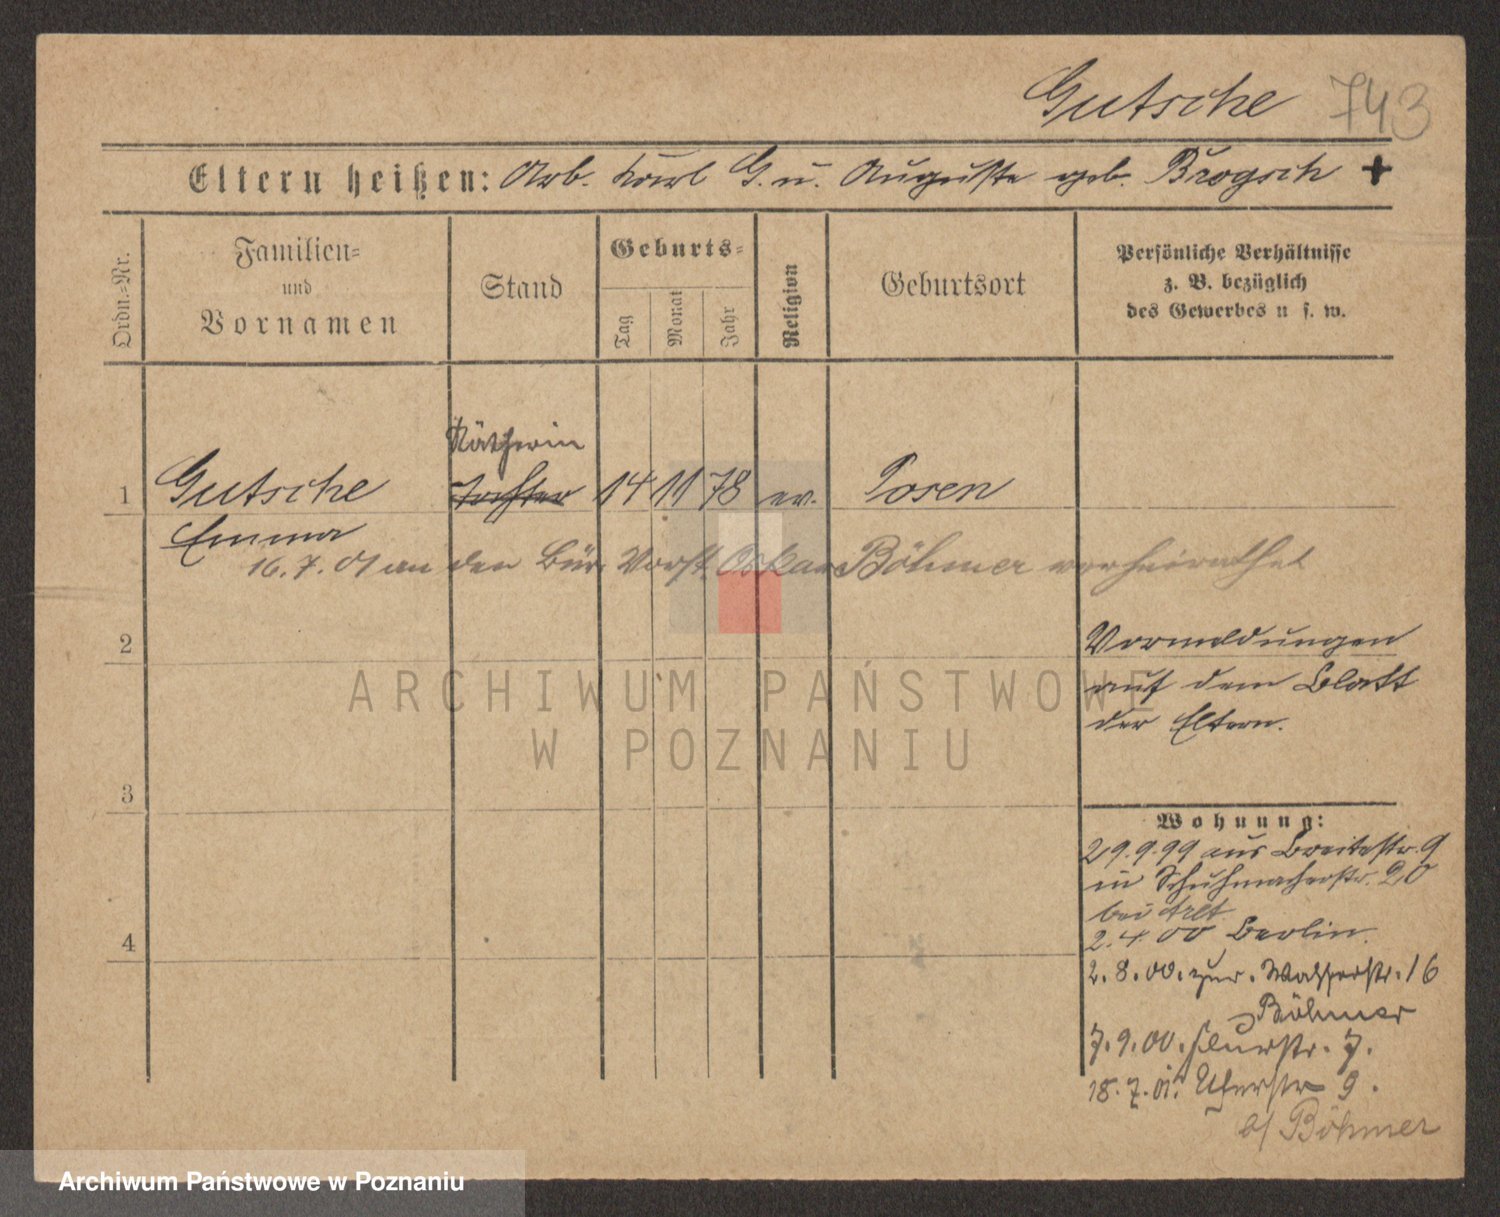 Gutsche 743
Eltern heißen: Arb. Karl G. u. Auguste geb. Brogsch +
Ordn.=Nr.
Familien=
und
Vornamen
Stand
Geburts=
Tag
Monat
Jahr
Religion
Geburtsort
Persönliche Verhältnisse
z. B. bezüglich
des Gewerbes u s. w.
Nätherin
1 Gutsche Tochter 14 11 78 ev. Posen
Emma
16.7.01 an den Bür. Vorst. Oskar Böhmer verheirathet
2
Vormeldungen
auf dem Blatt
der Eltern.
3
Wohnung:
29.9.99 aus Breitestr. 9
in Schuhmacherstr. 20
bei Arlt
4
2.4.00 Berlin.
2.8.00. zur. Wasserstr. 16
Böhmer
7.9.00. Flurstr. 7.
18.7.01. Uferstr 9.
b/ Böhmer
ARCHIWUM PAŃSTWOWE
W POZNANIU
Archiwum Państwowe w Poznaniu